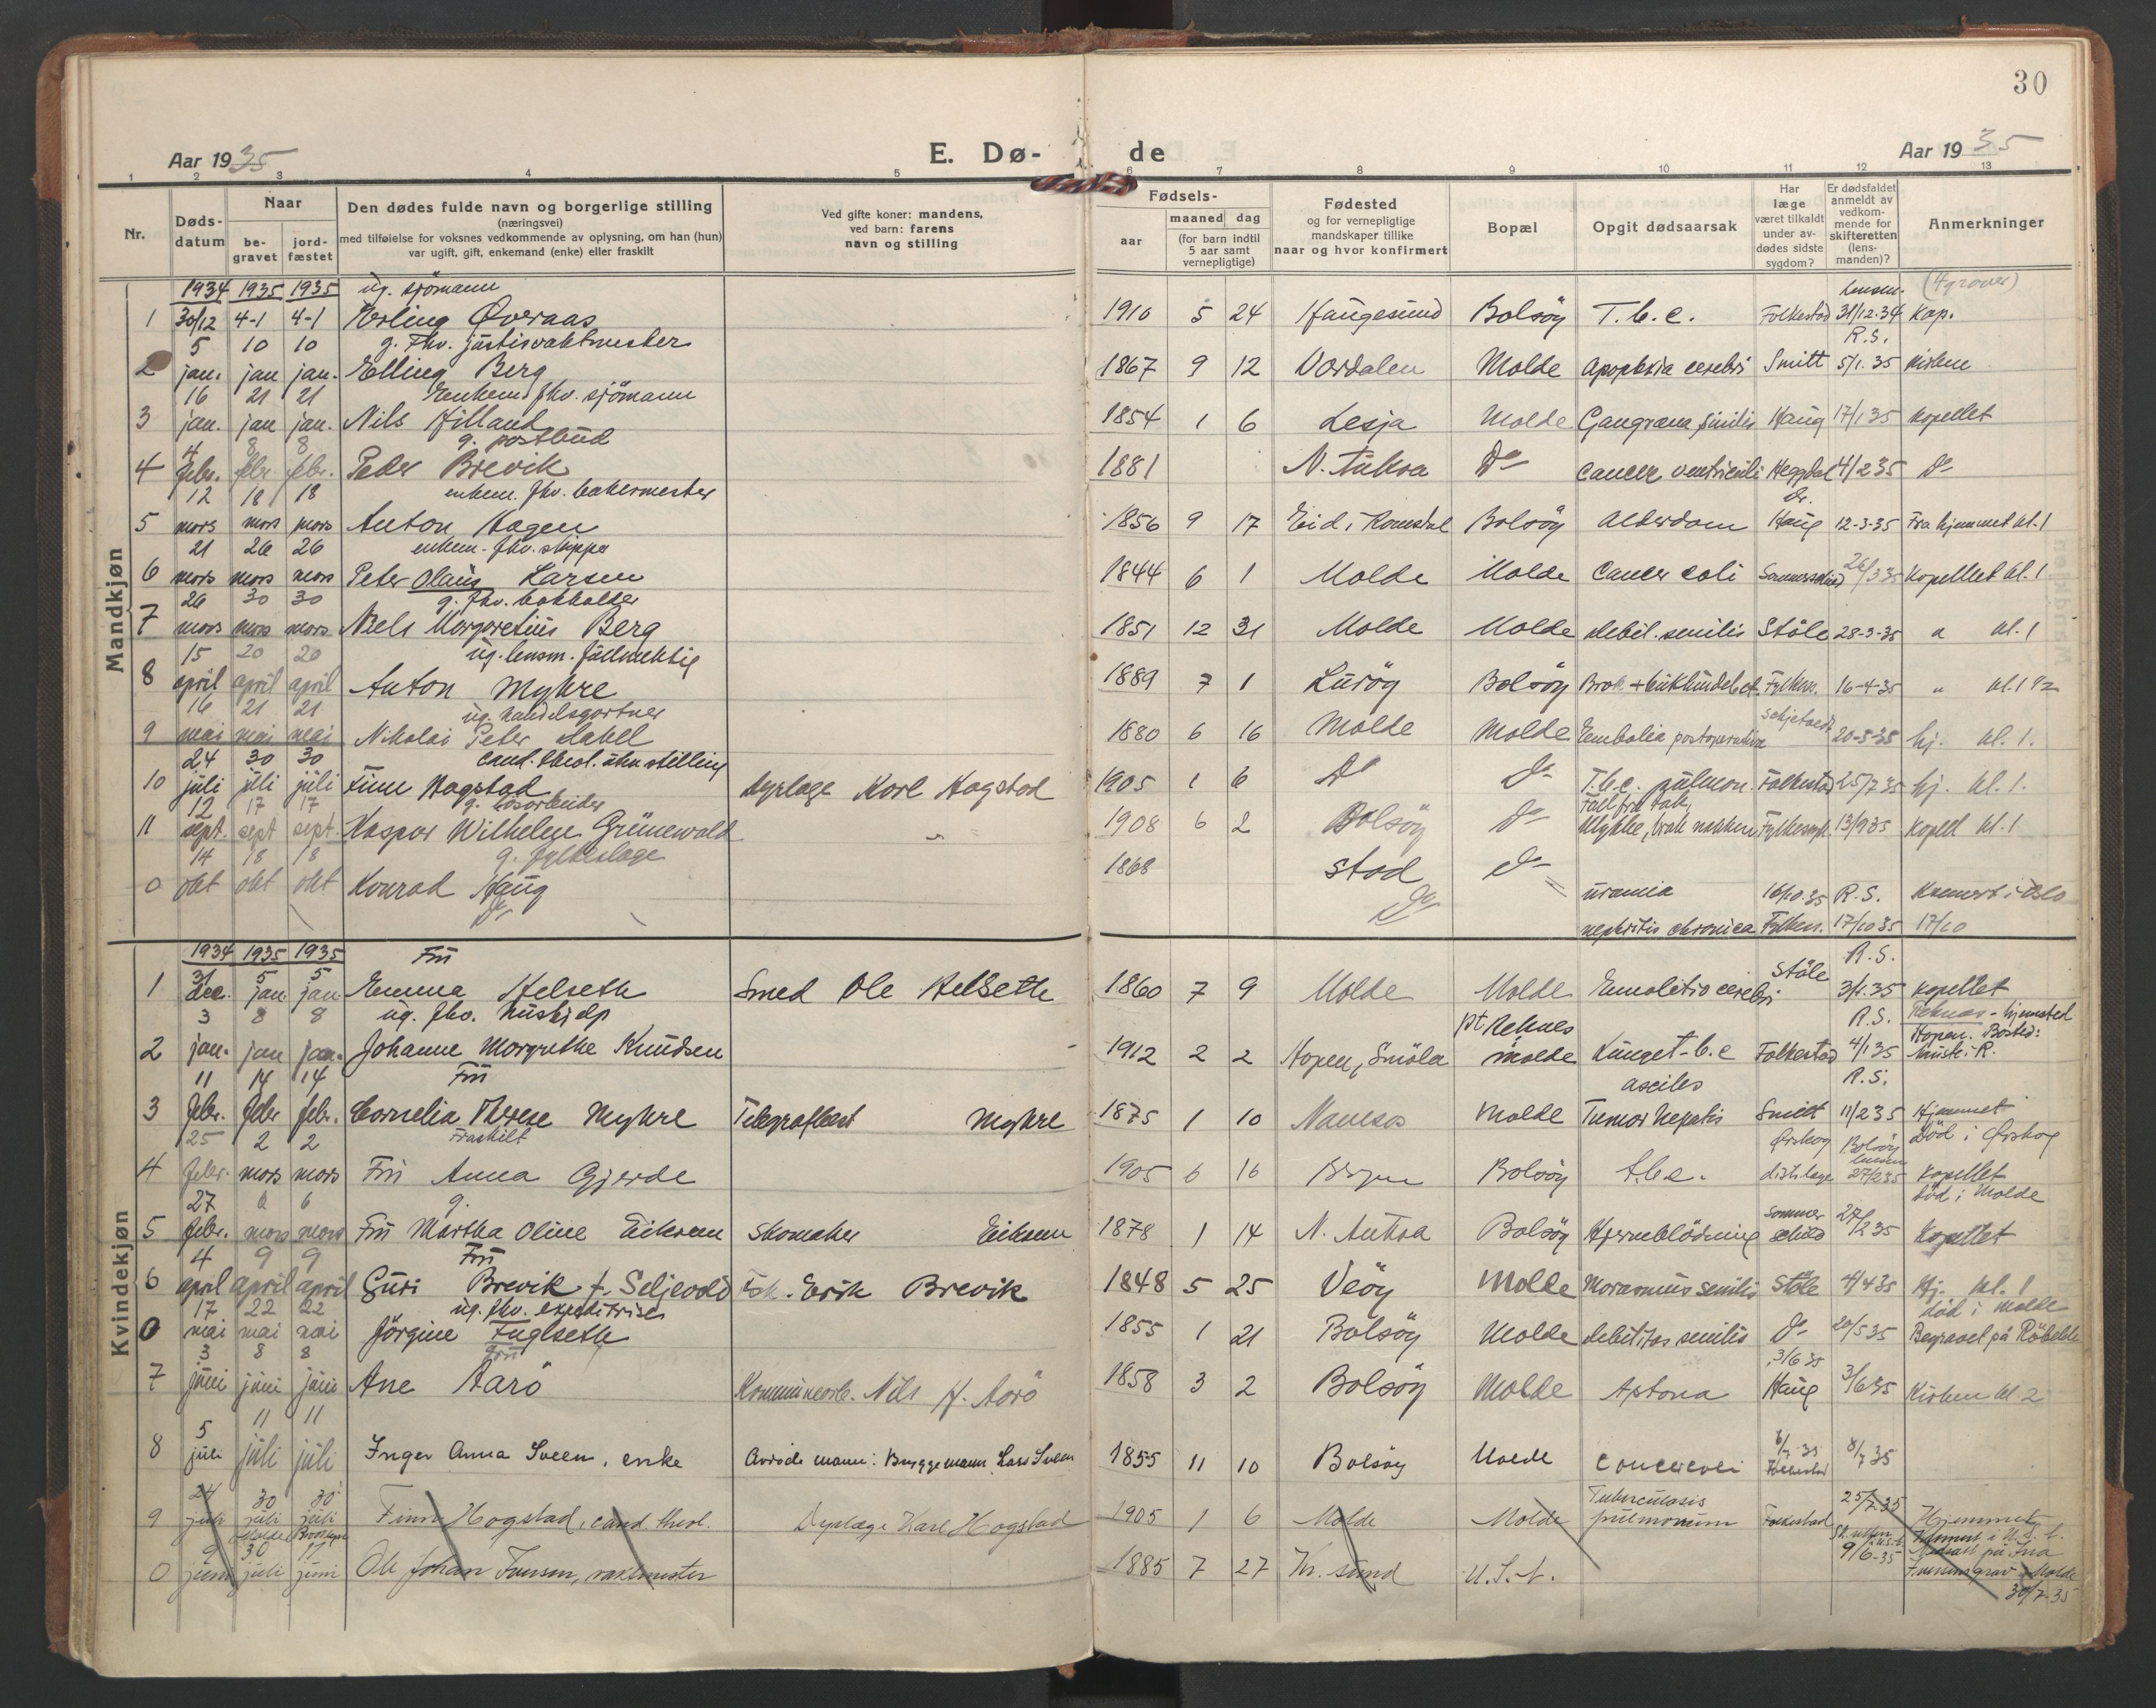 30
Aar 1935
E. Dø-
de
Aar 1935
1 2 3 4 5 6 7 8 9 10 11 12 13
Nr.
Døds-
datum
Naar
be-
gravet
jord-
fæstet
Den dødes fulde navn og borgerlige stilling
(næringsvei)
med tilføielse for voksnes vedkommende av oplysning, om han (hun)
var ugift, gift, enkemand (enke) eller fraskilt
Ved gifte koner: mandens,
ved barn: farens
navn og stilling
Fødsels-
aar
maaned dag
(for barn indtil
5 aar samt
vernepligtige)
Fødested
og for vernepligtige
mandskaper tillike
naar og hvor konfirmert
Bopæl
Opgit dødsaarsak
Har
læge
været tilkaldt
under av-
dødes sidste
sygdom?
Er dødsfaldet
anmeldt av
vedkom-
mende for
skifteretten
(lens-
manden)?
Anmerkninger
Mandkjøn
1934 1935 1935 ug. sjömann lensm.
1 30/12 4-1 4-1 Erling Øveraas 1910 5 24 Haugesund Bolsöy T.b.c. Folkestad 31/12-34 Kap.
5 10 10 g. fhv. justisvaktmester R.S.
2 jan. jan jan. Elling Berg 1867 9 12 Vordalen Molde apoplexia cerebri Smitt 5/1.35 kirken
16 21 21 Enkem. fhv. sjömann
3 jan. jan jan. Nils Hilland 1854 1 6 Lesja Molde Gangræna senilis Haug 17/1 35 kapellet
4 8 8 g. postbud
4 febr. febr febr. Peder Brevik 1881 N. Aukra Do cancer ventriculi Heggdal 4/2 35 Do
12 18 18 enkem. fhv. bakermester
5 mars mars mars Anton Hagen 1856 9 17 Eid i Romsdal Bolsöy Alderdom Dr. Haug 12-3-35 Fra hjemmet kl. 1
21 26 26 enkem. fhv. skipper
6 mars mars mars Peter Olaus Larsen 1844 6 1 Molde Molde Cancer coli 26/3 35 Kapellet kl. 1
26 30 30 g. fhv. bokholder
7 mars mars mars Niels Margretius Berg 1851 12 31 Molde Molde debil. senilis Ståle 28-3-35 " kl. 1
15 20 20 ug. lensm. fullmektig
8 april april april Anton Myhre 1889 7 1 Luröy Bolsöy Brok + Fylkess. 16-4-35 " kl. 1 1/2
16 21 21 ug. handelsgartner
9 mai mai mai Nikolai Peter Dahll 1880 6 16 Molde Molde Embolia postoperativa 20-5-35 hj. kl. 1.
24 30 30 cand. theol. uten stilling
10 juli juli juli Finn Hagstad Dyrlæge Karl Hagstad 1905 1 6 Do Do T.b.c. pulmon. Folkestad 25/7 35 hj. kl. 1.
12 17 17 g. løsarbeider Fall fra tak,
11 sept. sept sept. Kaspar Wilhelm Grünewald 1908 6 2 Bolsöy Do Ulykke, brak nakken Fylkessyk. 13/9 35 Kapell kl. 1
14 18 18 g. fylkeslæge
0 okt okt okt Konrad Haug 1868 Stad Do uræmia 16/10.35 R.S. Kremert i Oslo
nephritis chronica Fylkess. 17/10 35 17/10
Kvindekjøn
1934 1935 1935 Fru R.S.
31 5 5
1 dec. jan jan Emma Helseth Smed Ole Helseth 1860 7 9 Molde Molde Emolitio cerebri Ståle 3/1.35 kapellet
3 8 8 ug. fhv. hushjelp pt Reknes R.S. Reknes - hjemsted
2 jan. jan jan. Johanne Margrethe Knudsen 1912 2 2 Hopen, Smöla Molde Lunget-b.c Folkestad 4/1 35 Hopen. Bosted:
11 14 14 Fru ascites R.S.
3 febr. febr febr. Cornelia Therese Myhre Telegrafbest Myhre 1875 1 10 Namsos Molde Tumor hepatis Smitt 11/2 35 Hjemmet
25 2 2 fraskilt Ørskog Bolsöy lensm Död i Ørskog
4 febr. mars mars Fru Anna Gjerde 1905 6 16 Bergen Bolsöy t.b.c. distr.læge 27/2 35 kapellet
27 6 6 g. död i Molde
5 febr. mars mars Fru Martha Oline Eiksem Skomaker Eiksem 1878 1 14 N. Aukra Bolsöy Hjerneblödning Sommerschild 27/2 35 Kapellet
4 9 9 Fru
6 april april april Guri Brevik f. Seljevold Erik Brevik 1848 5 25 Veöy Molde Marasmus senilis Ståle 4/4 35 Hj. kl. 1
17 22 22 ug. fhv. expeditrise död i Molde
0 mai mai mai Jörgine Fuglseth 1855 1 21 Bolsöy Molde debilitas senilis Do 20/5 35 Begravet på Röbekk
3 8 8 Fru 3/6 35
7 juni juni juni Ane Aarö Kommunearb. Nils H. Aarö 1858 3 2 Bolsöy Molde Haug 3/6 35 Kirken kl. 2
5 11 11
8 juli juli juli Inger Anna Sveen, enke Avdöde mann: Bryggemann Lars Sveen 1855 11 10 Bolsöy Molde Cancer coli 8/7-35 Folkestad 8/7 35
24 30 30 Tuberculosis 25/7-35
9 juli juli juli Finn Hagstad, cand. theol. Dyrlæge Karl Hagstad 1905 1 6 Molde Molde pulmonum Folkestad Hjemmet
9 30 17 Molde Brooklyn Kremert i U.S.A.
0 juni juli juni Ole Johan Iversen, vaktmester 1885 7 27 Kr. sund U.S.A. 9/6-35 Nedsatt på
Iversens grav i Molde
30/7-35